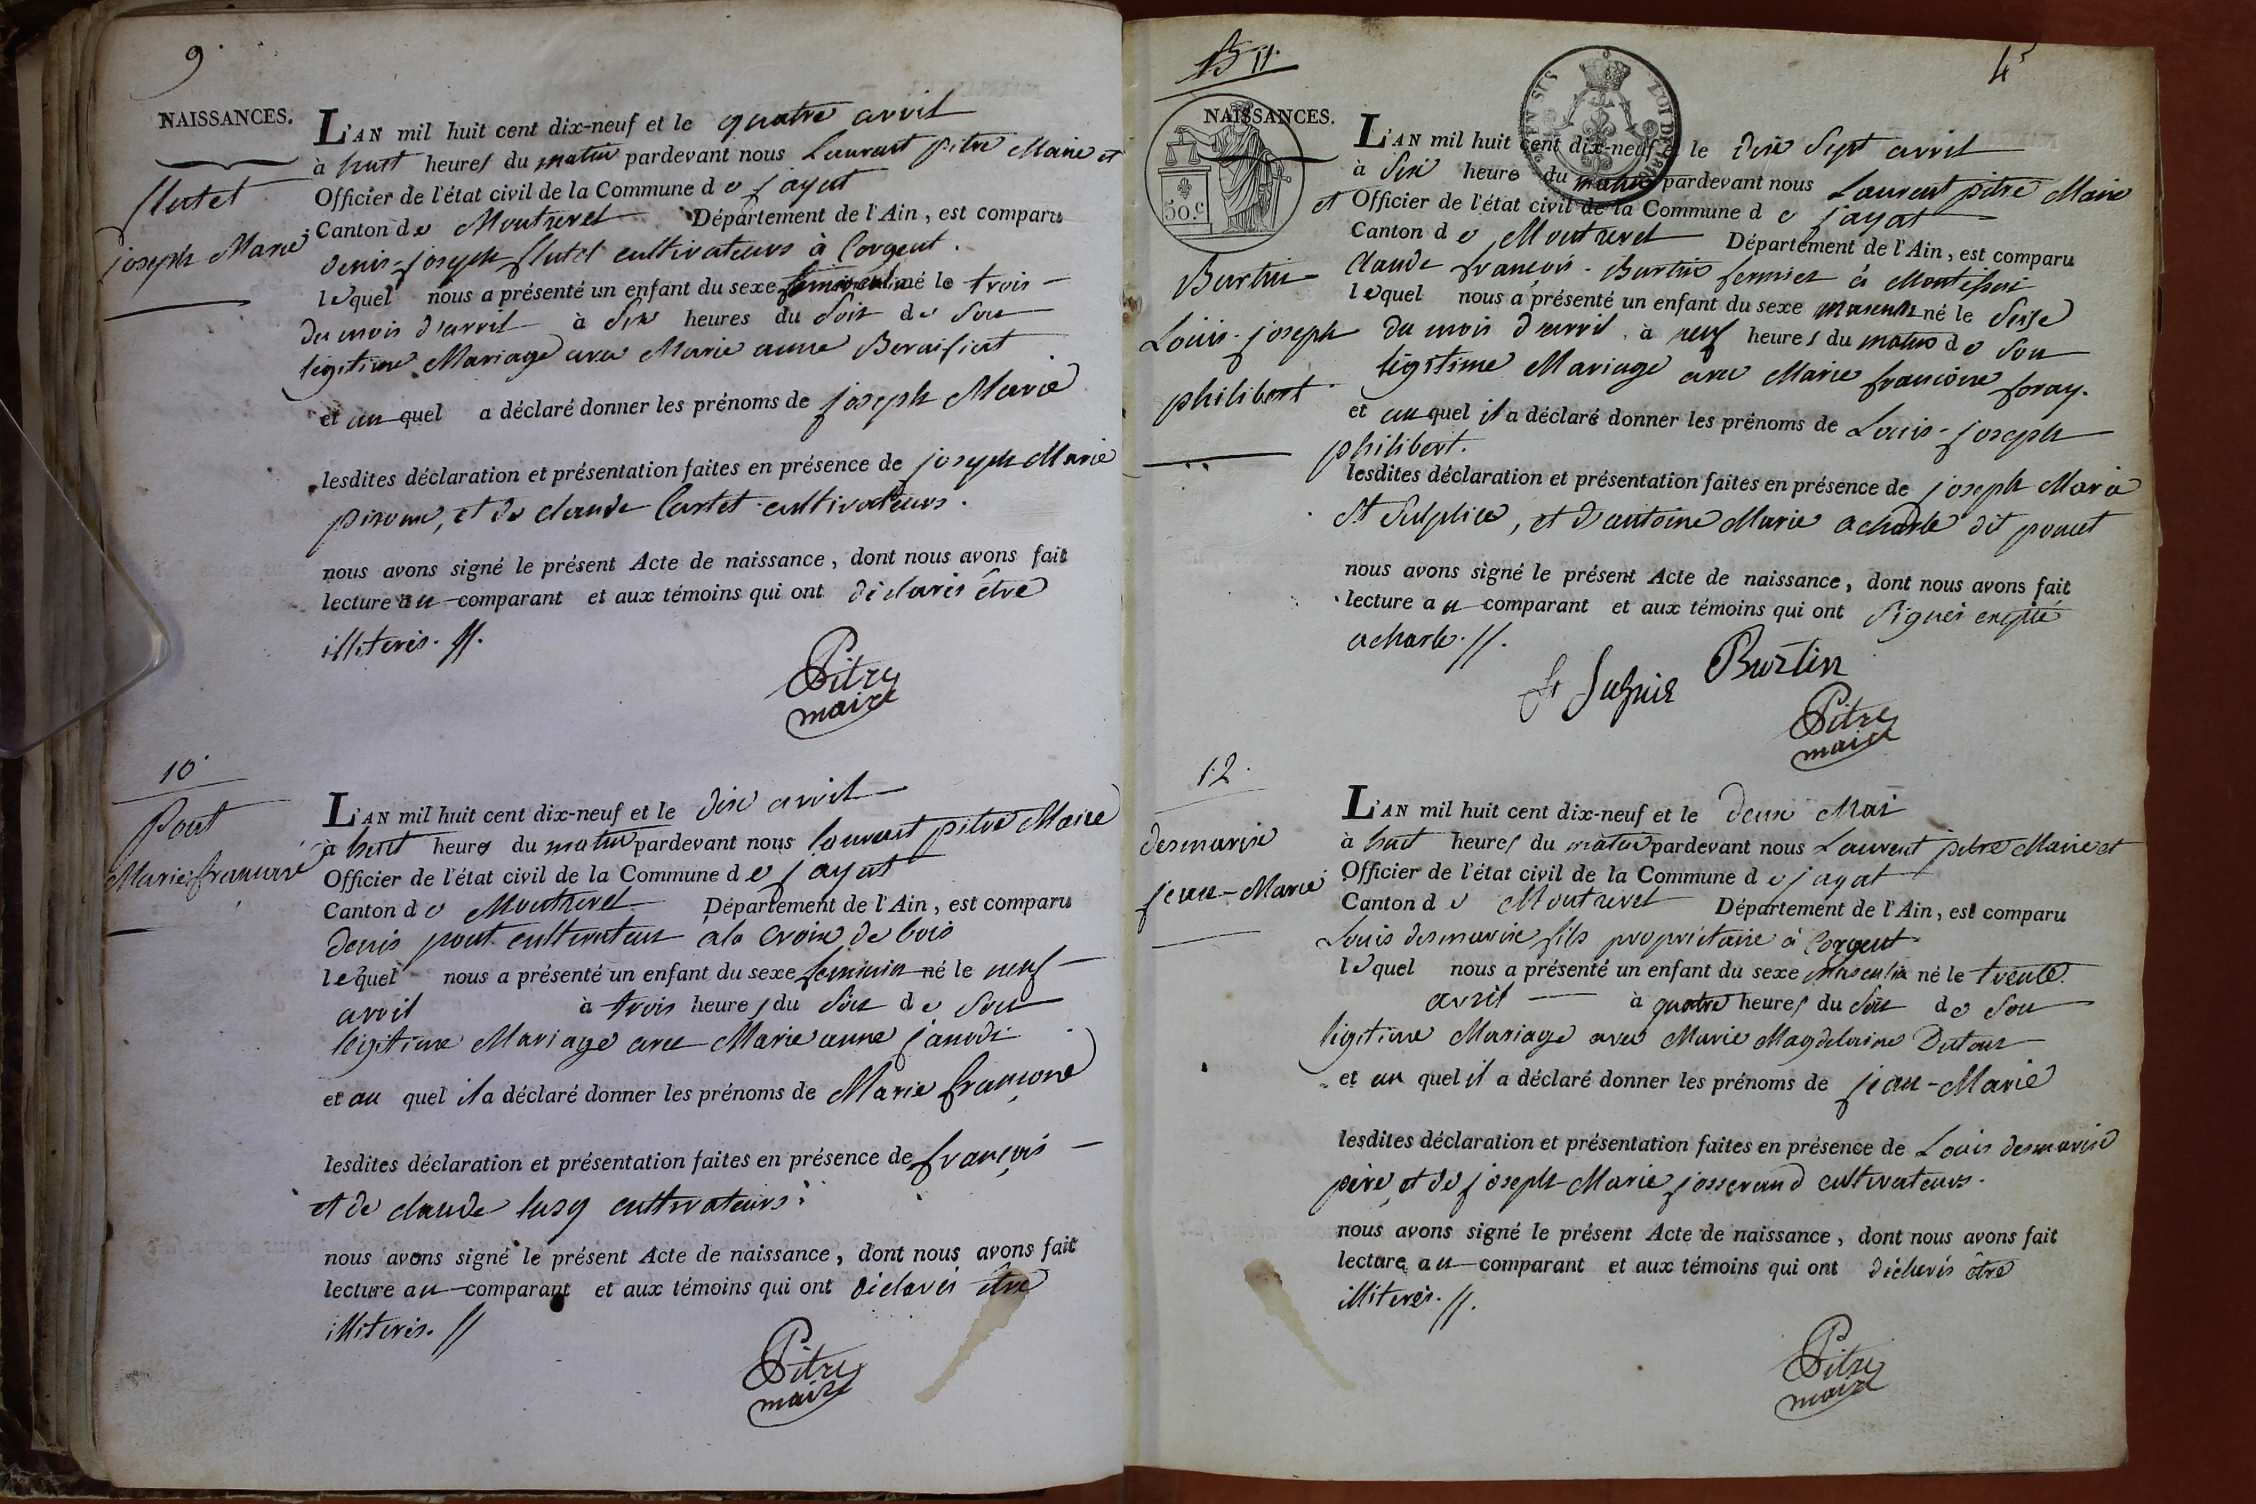 9.
NAISSANCES.
flutet
joseph Marie
L'AN mil huit cent dix-neuf et le quatre avril
à huit heures du matin pardevant nous Laurent pitre Maire et
Officier de l'état civil de la Commune de jayat
Canton de Montrevel Département de l'Ain, est comparu
denis-joseph flutet cultivateurs à Corgent.
lequel nous a présenté un enfant du sexe né le trois
du mois d'avril à Six heures du Soir de Son
légitime Mariage avec Marie anne
et au quel a déclaré donner les prénoms de joseph Marie
lesdites déclaration et présentation faites en présence de joseph Marie
et de claude Cartet cultivateurs.
nous avons signé le présent Acte de naissance, dont nous avons fait
lecture au comparant et aux témoins qui ont déclarés être
illiterés. //.
Pitre
maire
10.
Pont
Marie françoise
L'AN mil huit cent dix-neuf et le dix avril
à huit heures du matin pardevant nous laurent pitre Maire
Officier de l'état civil de la Commune de jayat
Canton de Montrevel Département de l'Ain, est comparu
denis pont cultivateur a la croix de bois
lequel nous a présenté un enfant du sexe feminin né le neuf
avril à trois heures du Soir de Son
légitime Mariage avec Marie anne
et au quel il a déclaré donner les prénoms de Marie françoise
lesdites déclaration et présentation faites en présence de françois
et de claude cultivateurs.
nous avons signé le présent Acte de naissance, dont nous avons fait
lecture au comparant et aux témoins qui ont déclarés être
illiterés. //
Pitre
maire
11.
4
50.c
NAISSANCES.
Burtin
Louis-joseph
philibert
L'AN mil huit cent dix-neuf et le dix Sept avril
à Six heure du matin pardevant nous Laurent pitre Maire
et Officier de l'état civil de la Commune de jayat
Canton de Montrevel Département de l'Ain, est comparu
claude françois Burtin fermier à
lequel nous a présenté un enfant du sexe masculin né le Seize
du mois d'avril à neuf heures du matin de Son
légitime Mariage avec Marie francoise foray.
et au quel il a déclaré donner les prénoms de Louis-joseph
philibert.
lesdites déclaration et présentation faites en présence de joseph Marie
St Sulpice, et d'antoine Marie acharle dit poncet
nous avons signé le présent Acte de naissance, dont nous avons fait
lecture au comparant et aux témoins qui ont Signés
acharle. //.
Burtin
Pitre
maire
12.
desmarix
jean-Marie
L'AN mil huit cent dix-neuf et le deux Mai
à huit heures du matin pardevant nous Laurent pitre Maire et
Officier de l'état civil de la Commune de jayat
Canton de Montrevel Département de l'Ain, est comparu
Louis desmarix fils propriétaire à Corgent
lequel nous a présenté un enfant du sexe Masculin né le trente
avril à quatre heures du Soir de Son
légitime Mariage avec Marie Magdelaine Dutour
et au quel il a déclaré donner les prénoms de jean-Marie
lesdites déclaration et présentation faites en présence de Louis desmarix
père, et de joseph Marie josserand cultivateurs.
nous avons signé le présent Acte de naissance, dont nous avons fait
lecture au comparant et aux témoins qui ont déclarés être
illiterés. //.
Pitre
maire